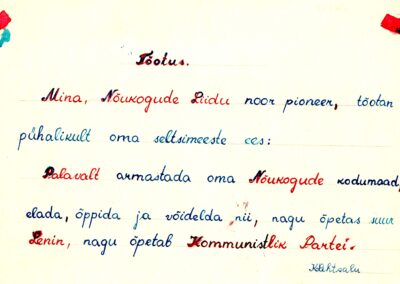 Tõotus.
Mina, Nõukogude Liidu noor pioneer, tõotan
pühalikult oma seltsimeeste ees:
Palavalt armastada oma Nõukogude kodumaad,
elada, õppida ja võidelda nii, nagu õpetas suur
Lenin, nagu õpetab Kommunistlik Partei.